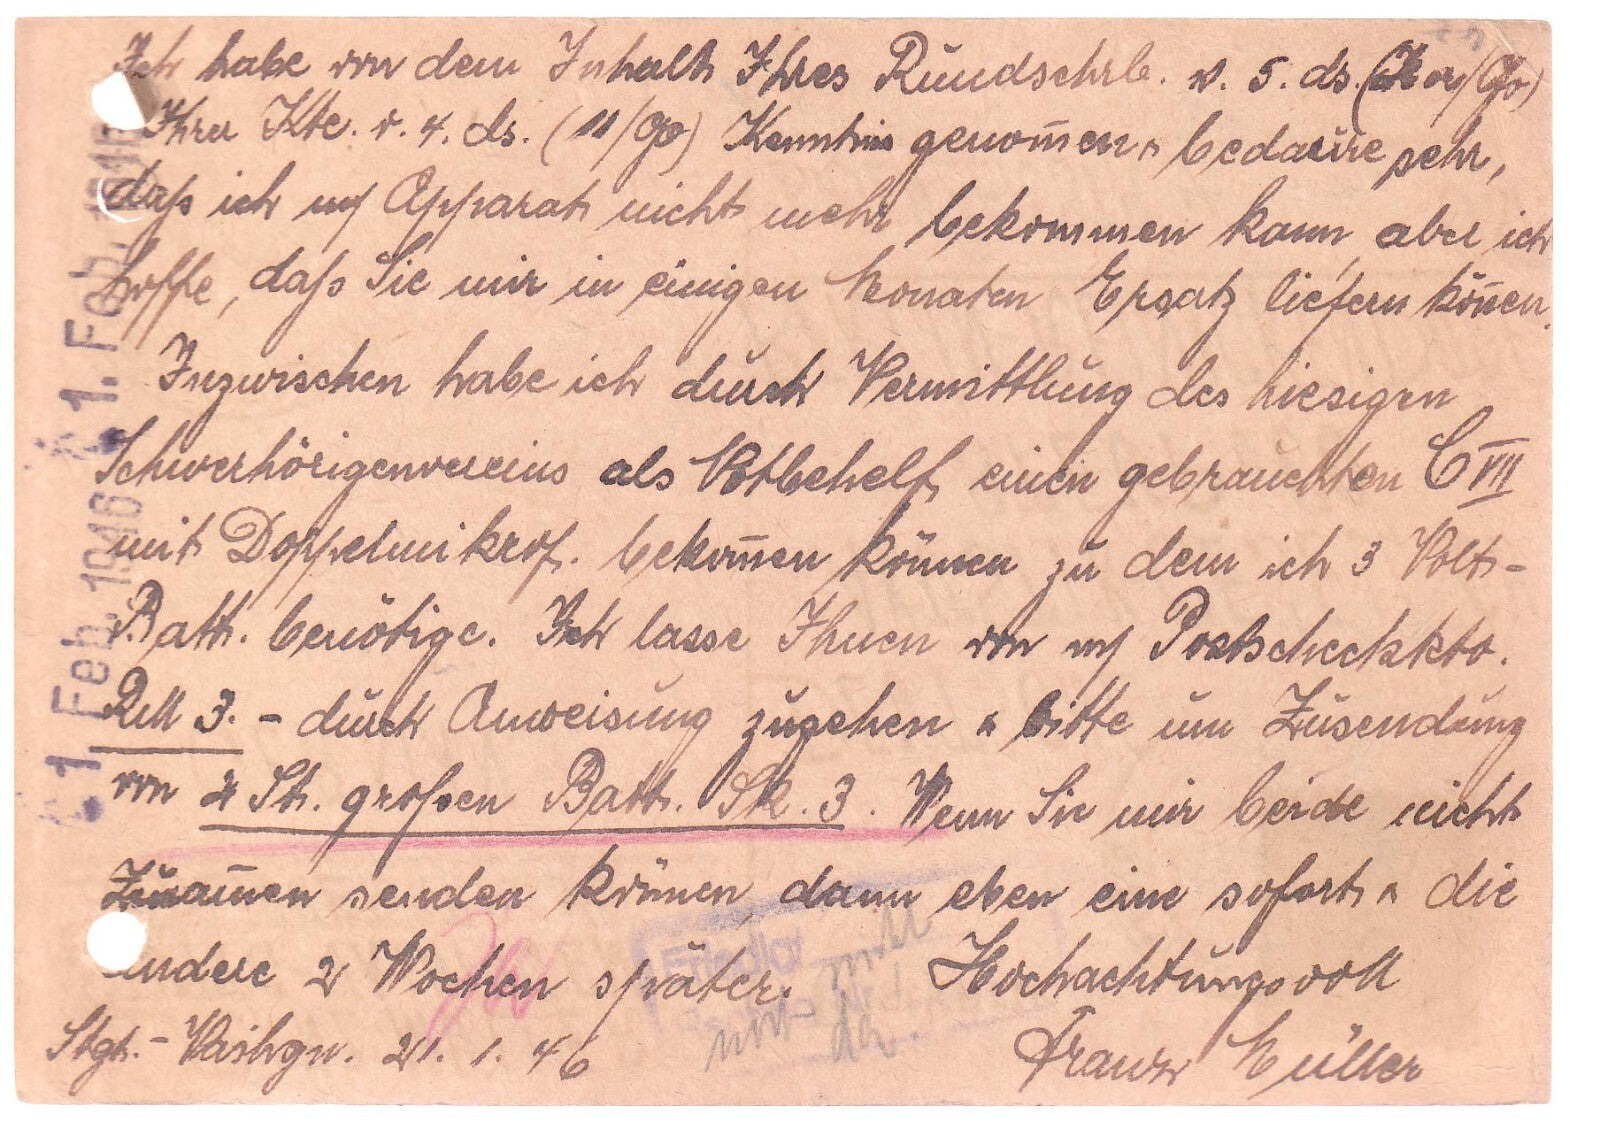 Ich habe von dem Inhalt Ihres Rundschrb. v. 5. ds. (
Ihrer Kte. v. 4. ds. (11/Go) Kenntnis genom̄en & bedaure sehr,
daß ich m/ Apparat nicht mehr bekommen kann, aber ich
hoffe, daß Sie mir in einigen Monaten Ersatz liefern kön̄en.
Inzwischen habe ich durch Vermittlung des hiesigen
Schwerhörigenvereins als Notbehelf einen gebrauchten C VIII
mit Doppelmikrof. bekom̄en können zu dem ich 3 Volt-
Batt. benötige. Ich lasse Ihnen von m/ Postscheckkto.
RM 3.- durch Anweisung zugehen & bitte um Zusendung
von 2 St. großen Batt. Sk. 3. Wenn Sie mir beide nicht
zusam̄en senden kön̄en, dann eben eine sofort & die
andere 2 Wochen später. Hochachtungsvoll
Stgt.-Vaihgn. 21. 1. 46 Franz Müller
1. Feb. 1946
1. Feb. 1946